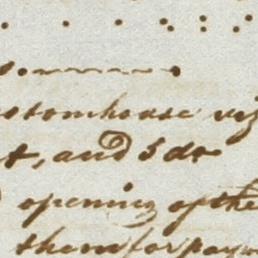 ostomhouse viz
t, and I do
opening of the
thereof for pay